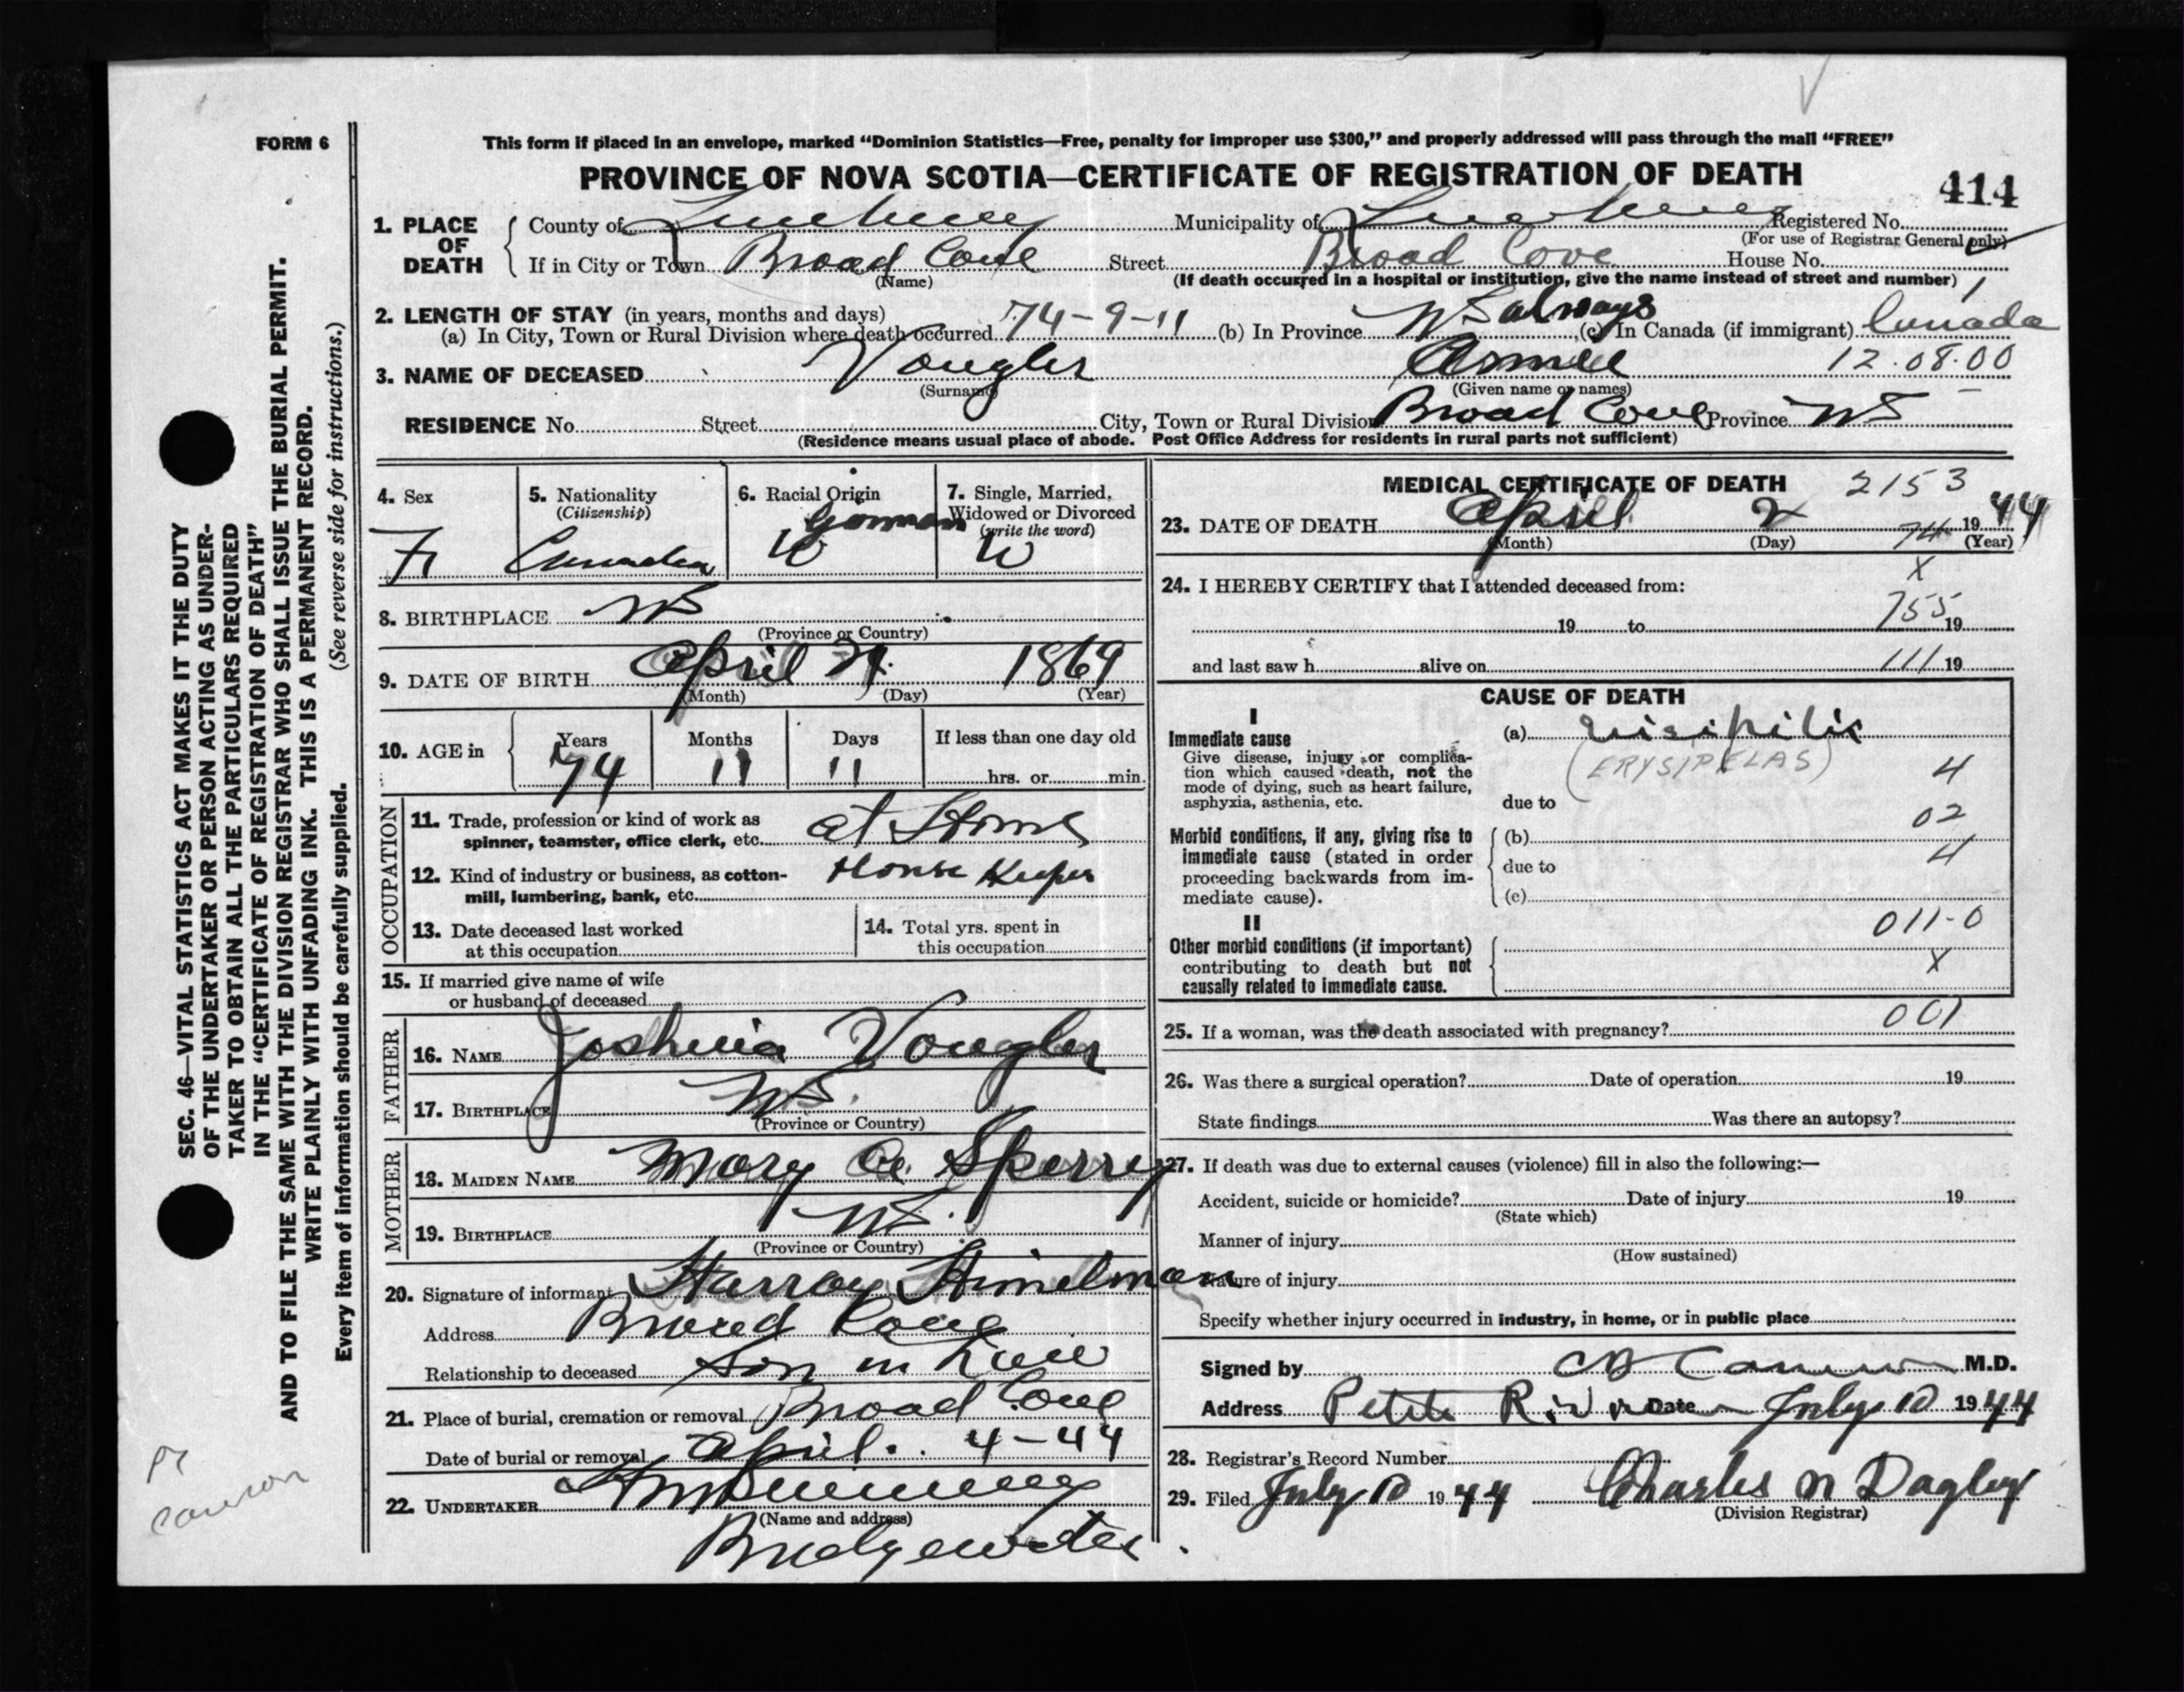 FORM 6
This form if placed in an envelope, marked “Dominion Statistics—Free, penalty for improper use $300,” and properly addressed will pass through the mail “FREE”
PROVINCE OF NOVA SCOTIA—CERTIFICATE OF REGISTRATION OF DEATH
414
1. PLACE OF DEATH
County of Lunenburg Municipality of Lunenburg Registered No.
(For use of Registrar General only)
If in City or Town Broad Cove Street Broad Cove House No.
(Name)
(If death occurred in a hospital or institution, give the name instead of street and number) 1
2. LENGTH OF STAY (in years, months and days)
(a) In City, Town or Rural Division where death occurred 74-9-11 (b) In Province NS always (c) In Canada (if immigrant) Canada
3. NAME OF DECEASED Vougler Annie 12.08.00
(Surname) (Given name or names)
RESIDENCE No. Street City, Town or Rural Division Broad Cove Province NS
(Residence means usual place of abode. Post Office Address for residents in rural parts not sufficient)
4. Sex
F
5. Nationality
(Citizenship)
Canadian
6. Racial Origin
German
W
7. Single, Married, Widowed or Divorced
(write the word)
W
8. BIRTHPLACE NS
(Province or Country)
9. DATE OF BIRTH April 21 1869
(Month) (Day) (Year)
10. AGE in
Years 74
Months 11
Days 11
If less than one day old
hrs. or min.
OCCUPATION
11. Trade, profession or kind of work as at Home
spinner, teamster, office clerk, etc.
12. Kind of industry or business, as cotton- House Keeper
mill, lumbering, bank, etc.
13. Date deceased last worked
at this occupation
14. Total yrs. spent in
this occupation
15. If married give name of wife
or husband of deceased
FATHER
16. NAME Joshuia Vougler
17. BIRTHPLACE NS.
(Province or Country)
MOTHER
18. MAIDEN NAME Mary A Sperry
19. BIRTHPLACE NS.
(Province or Country)
20. Signature of informant Harray Himelman
Address Broad Cove
Relationship to deceased Son in Law
21. Place of burial, cremation or removal Broad Cove
Date of burial or removal April. 4-44
22. UNDERTAKER
(Name and address)
Bridgewater.
MEDICAL CERTIFICATE OF DEATH 2153
23. DATE OF DEATH April 2 1944
(Month) (Day) (Year)
74
X
24. I HEREBY CERTIFY that I attended deceased from:
755
19 to 19
and last saw h alive on 111 19
CAUSE OF DEATH
I
Immediate cause
Give disease, injury or complica-
tion which caused death, not the
mode of dying, such as heart failure,
asphyxia, asthenia, etc.
(a) Erisipilis
(ERYSIPELAS) 4
due to
02
Morbid conditions, if any, giving rise to
immediate cause (stated in order
proceeding backwards from im-
mediate cause).
(b)
4
due to
(c)
II
011-0
Other morbid conditions (if important)
contributing to death but not
causally related to immediate cause.
X
25. If a woman, was the death associated with pregnancy? 001
26. Was there a surgical operation? Date of operation 19
State findings Was there an autopsy?
27. If death was due to external causes (violence) fill in also the following:—
Accident, suicide or homicide? Date of injury 19
(State which)
Manner of injury
(How sustained)
Nature of injury
Specify whether injury occurred in industry, in home, or in public place
Signed by M.D.
Address Petite Riviere Date July 10 1944
28. Registrar's Record Number
29. Filed July 10 1944 Charles N Dagley
(Division Registrar)
SEC. 46—VITAL STATISTICS ACT MAKES IT THE DUTY
OF THE UNDERTAKER OR PERSON ACTING AS UNDER-
TAKER TO OBTAIN ALL THE PARTICULARS REQUIRED
IN THE “CERTIFICATE OF REGISTRATION OF DEATH”
AND TO FILE THE SAME WITH THE DIVISION REGISTRAR WHO SHALL ISSUE THE BURIAL PERMIT.
WRITE PLAINLY WITH UNFADING INK. THIS IS A PERMANENT RECORD.
Every item of information should be carefully supplied. (See reverse side for instructions.)